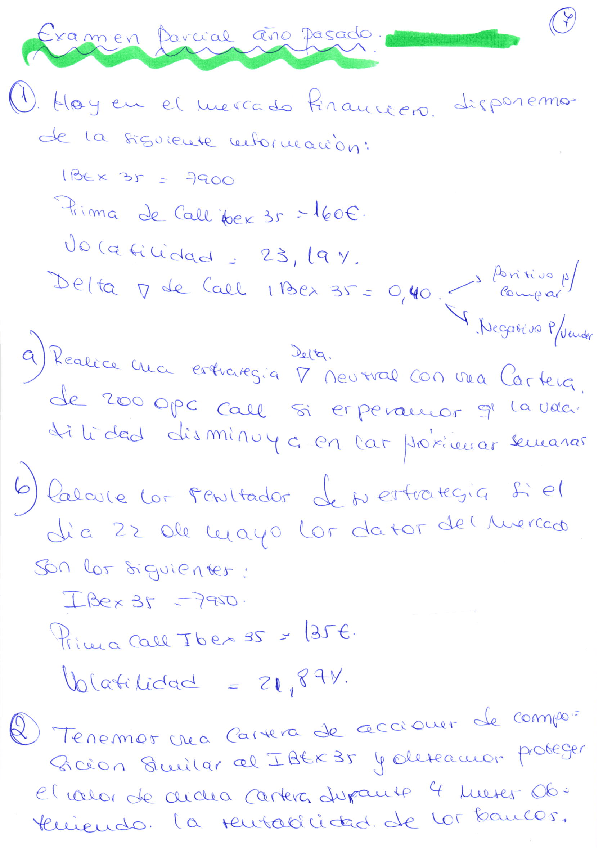 7
Examen Parcial año pasado.
① Hoy en el mercado financiero. disponemos
de la siguiente información:
IBEX 35 = 7900
Prima de Call ibex 35 = 160€.
Volatilidad = 23,19%.
Delta ∇ de Call IBEX 35 = 0,40.
Positivo p/
comprar
Negativo P/vender
Delta.
a) Realice una estrategia ∇ neutral con una Cartera.
de 200 opc call si esperamos q la vola-
tilidad disminuya en las próximas semanas
b) Calcule los resultados de su estrategia si el
día 22 de mayo los datos del mercado
son los siguientes:
IBEX 35 = 7950.
Prima Call Ibex 35 = 135€.
Volatilidad = 21,89%.
② Tenemos una Cartera de acciones de compo-
sición similar al IBEX 35 y deseamos proteger
el valor de dicha cartera durante 4 meses ob-
teniendo. la rentabilidad de los bancos.